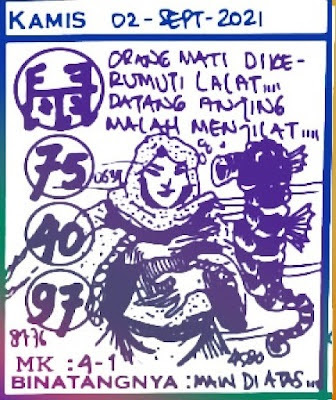 KAMIS 02-SEPT-2021
ORANG MATI DIKE-
RUMUTI LALAT,,,,
DATANG ANJING
MALAH MENJILAT,,,,
75
40
97
8476
4580
MK : 4-1
BINATANGNYA : MAIN DI ATAS...